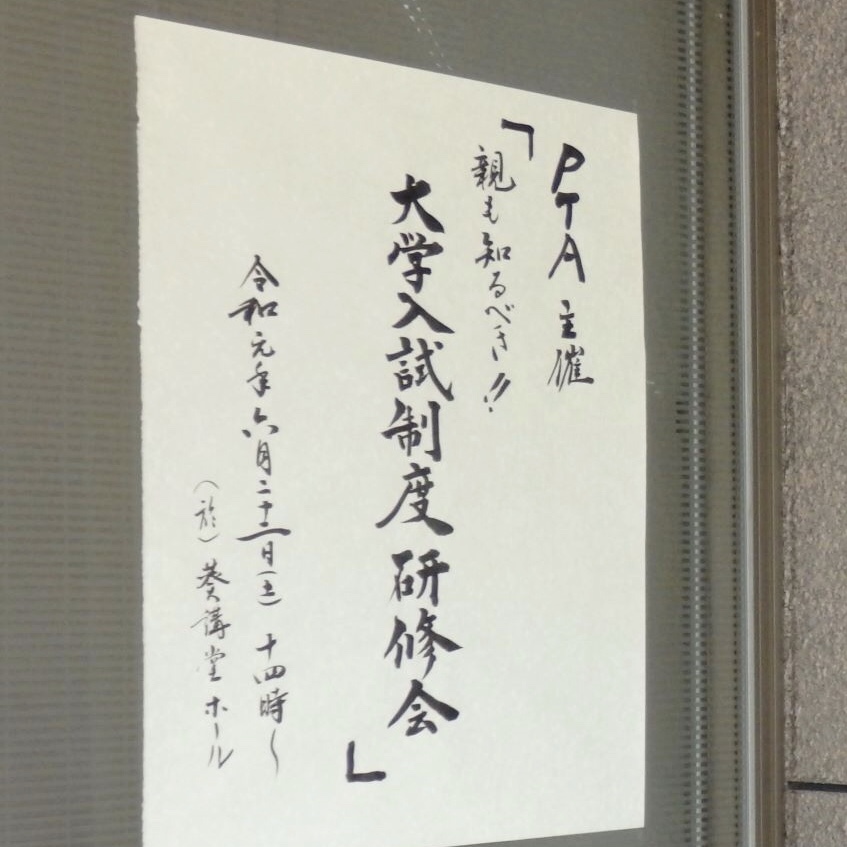 PTA主催
「親も知るべき!!
大学入試制度研修会」
令和元年六月二十二日(土)十四時~
(於)葵講堂ホール